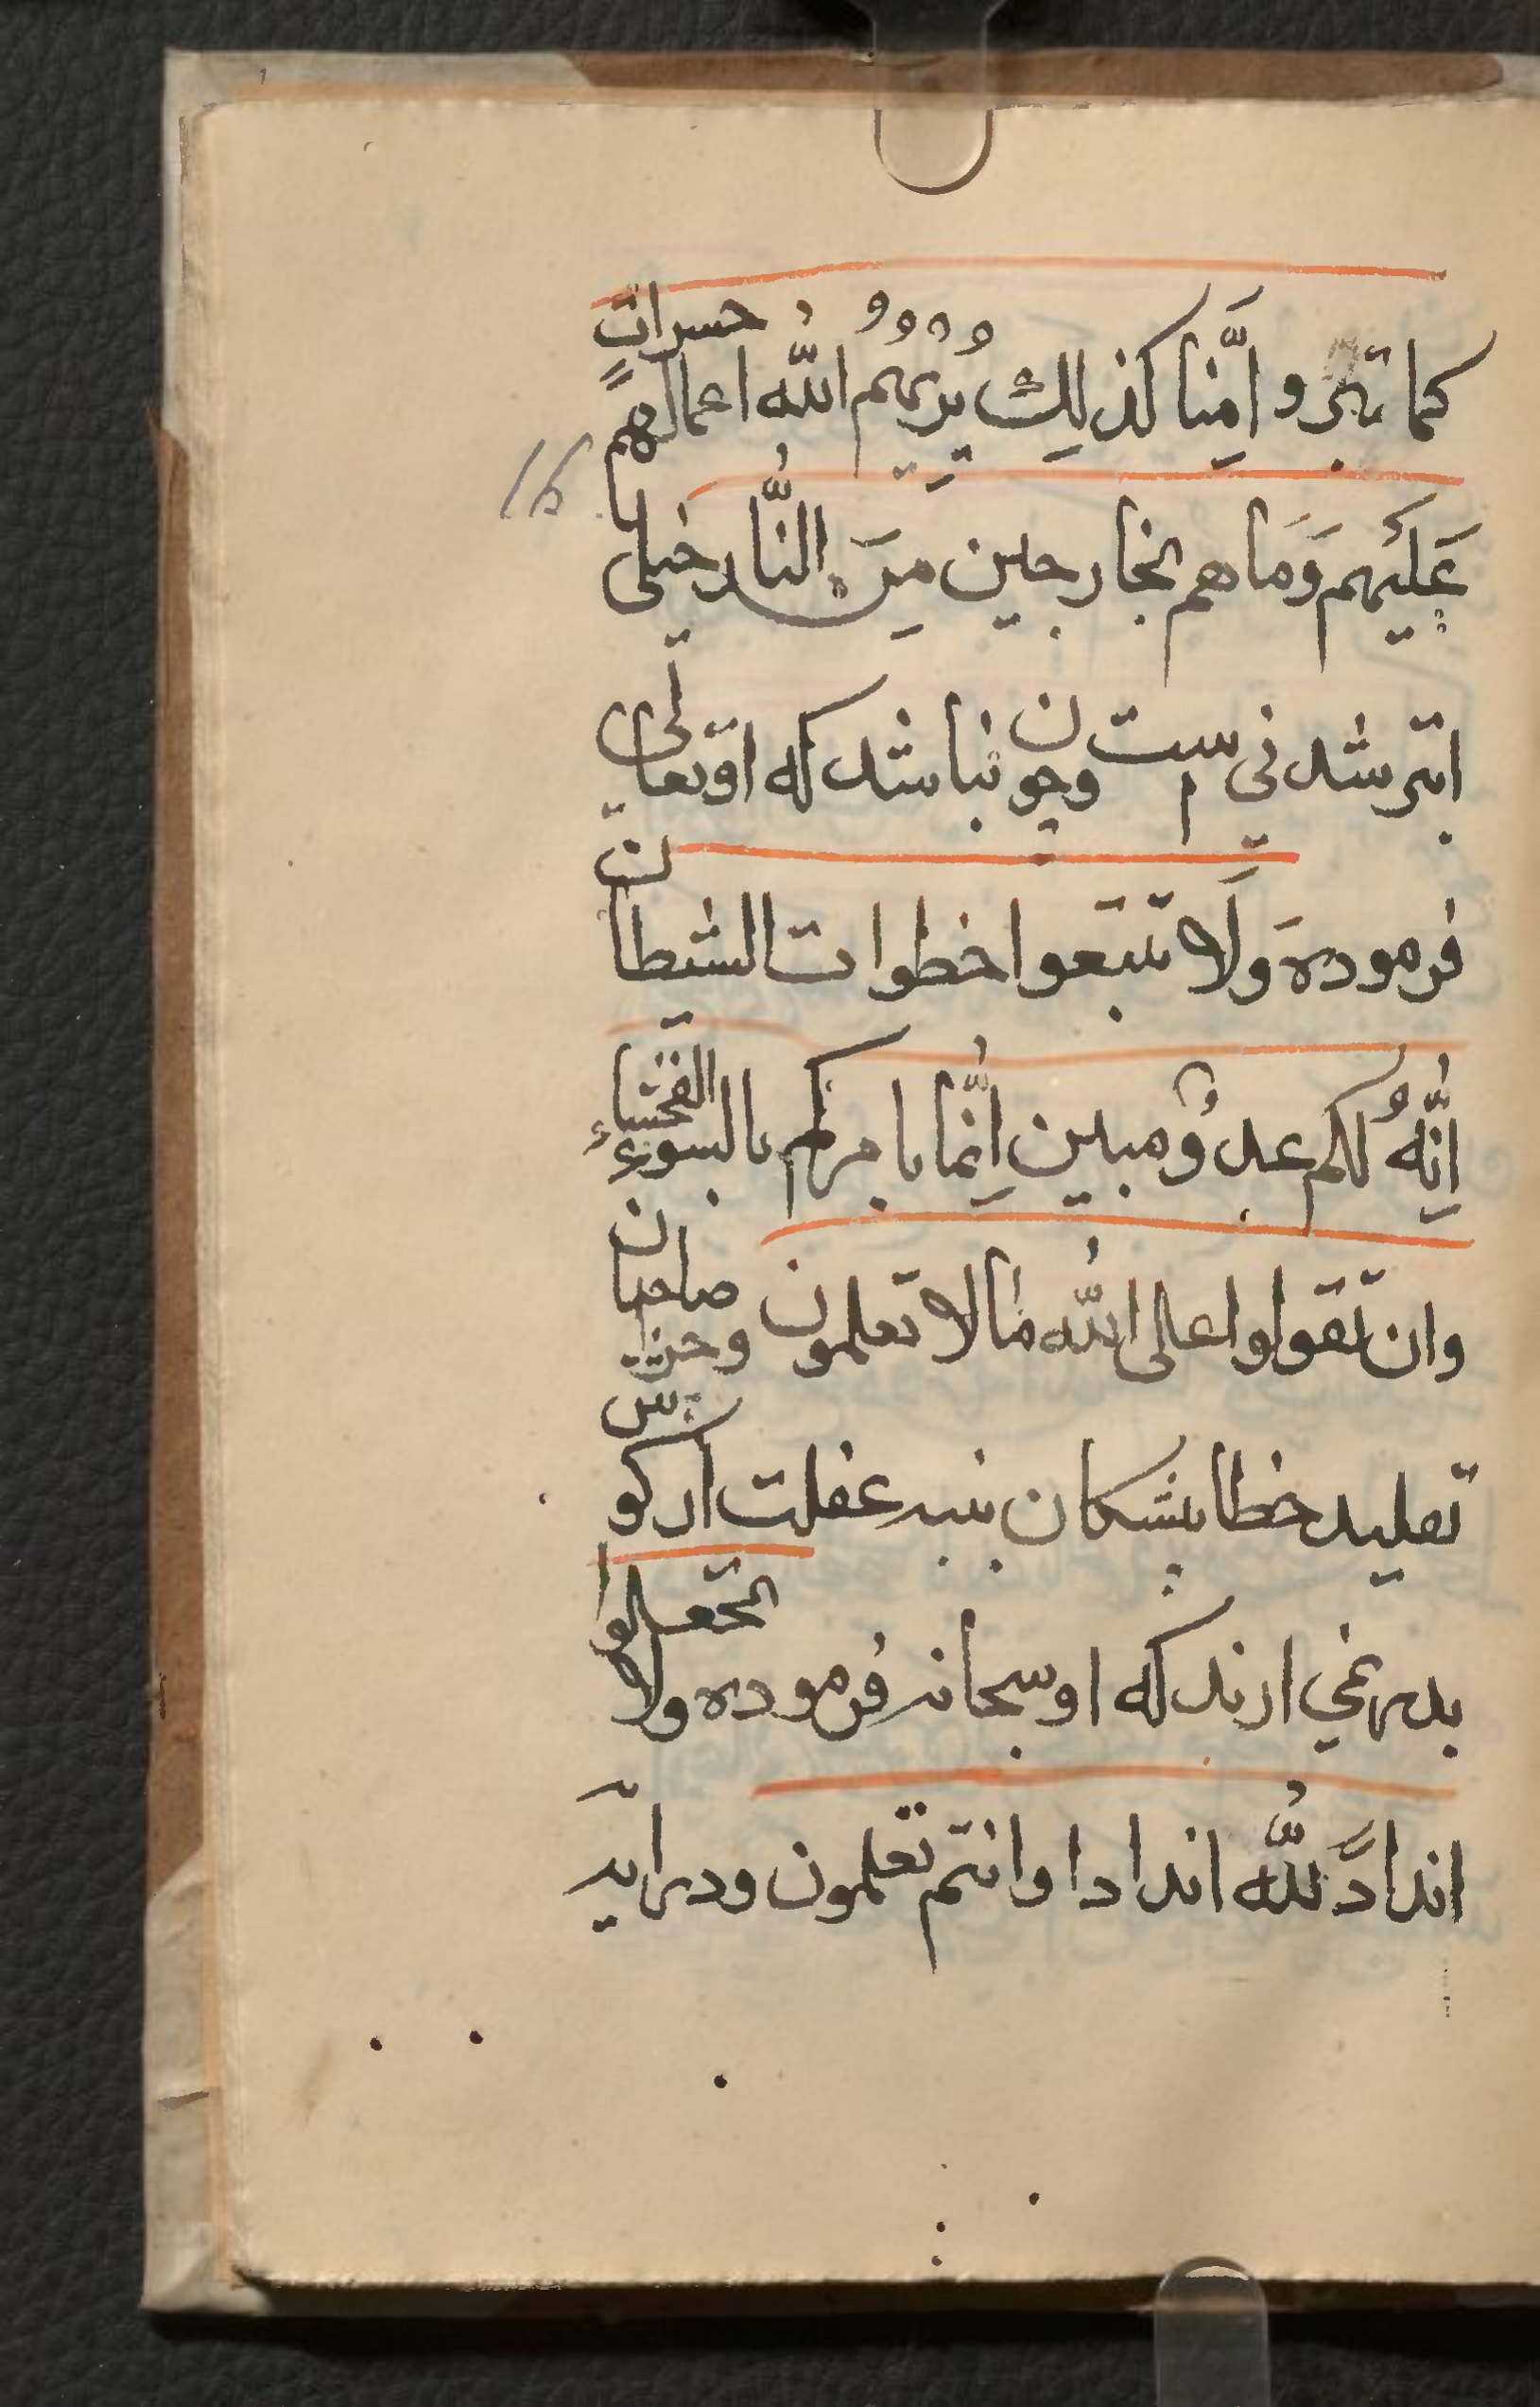 كما تبرو امِّنا كذلِك يُرِيهُمُ اللّٰهُ اعمالهم حسراتٍ
عَلَيهم وَمَا هم بخارجين مِنَ النَّار خيلى
ابتر شد نى ست وچو نباشد كه او تعالى
فرموده وَلَا تتبعوا خطوات الشيطان
اِنّهُ لكم عدوٌ مبين اِنَّما يامركم بالسوءِ الفحشاء
وان تقولوا على اللّٰه مٰا لا تعلمون وحزن صاحبان
تقليد خطا پشكان پنبه غفلت از كوش
بدر نمي ارند كه او سبحانه فرموده ولا تجعلوا
انداداً للّٰه اندادا وانتم تعلمون ودر ايه
16